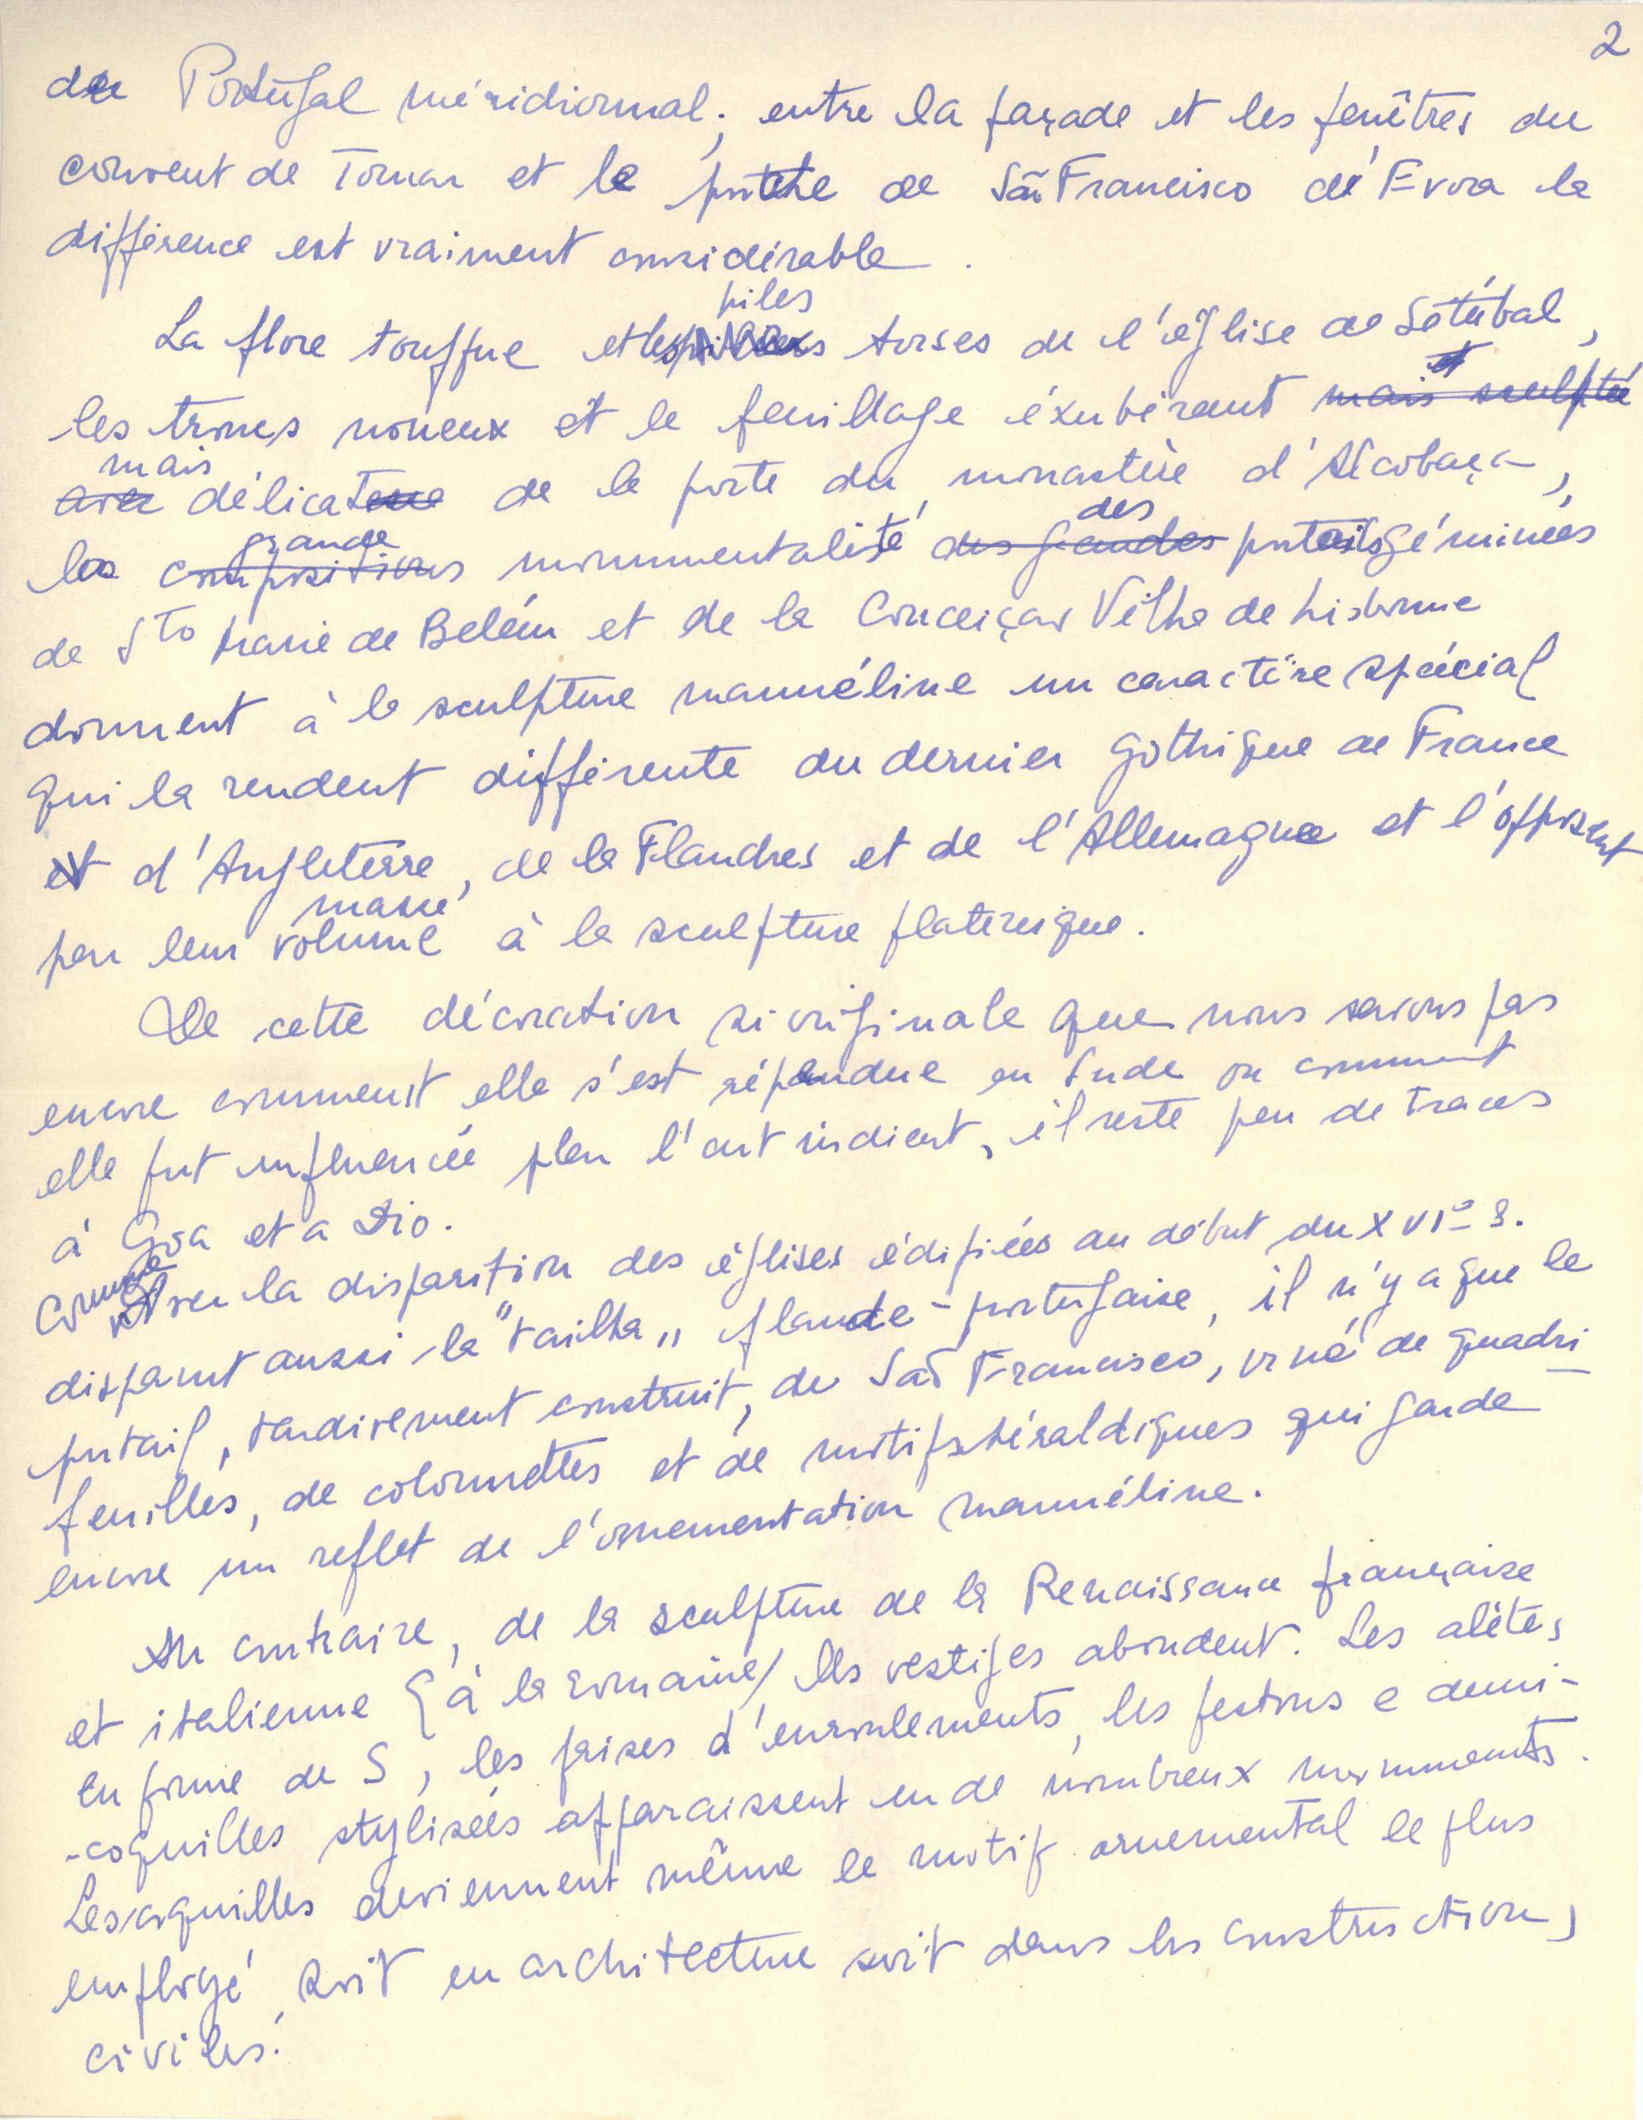 2
du Portugal méridionnal; entre la façade et les fenêtres du
convent de Tomar et le porche de São Francisco de Évora la
différence est vraiment considérable.
piles
La flore touffue et les torses de l'église de Setúbal,
et
les troncs noueux et le feuillage éxubérant mais sculptée
mais
avec délicatesse de la porte du monastère d'Alcobaça,
grande des
les compositions monumentalité des grandes portails géminées
de Sto Marie de Belém et de la Conceiçao Velha de Lisbonne
donnent à la sculpture manuéline un caractère spécial
qui la rendent différente du dernier gothique de France
et d'Angleterre, de la Flandres et de l'Allemagne et l'opposent
masse
par leur volume à la sculpture plateresque.
De cette décoration si originale que nous savons pas
encore comment elle s'est répandue en Inde ou comment
elle fut influencée par l'art indient, il reste peu de traces
à Goa et a Dio.
Comme
avec la disparition des églises édifiées au début du XVIe s.
disparut aussi la "tailha" flande-portugaise, il n'y a que le
portail, tardivement construit, de São Francisco, orné de quadri
feuilles, de colonnettes et de motifs héraldiques qui garde
encore un reflet de l'ornementation manuéline.
Au contraire, de la sculpture de la Renaissance française
et italienne (à la romaine) les vestiges abondent. Les alètes
en forme de S, les frises d'enroulements, les festons e demi-
-coquilles stylisées apparaissent en de nombreux monuments.
Les coquilles deviennent même le motif ornemental le plus
employé, soit en architecture soit dans les constructions
civiles.